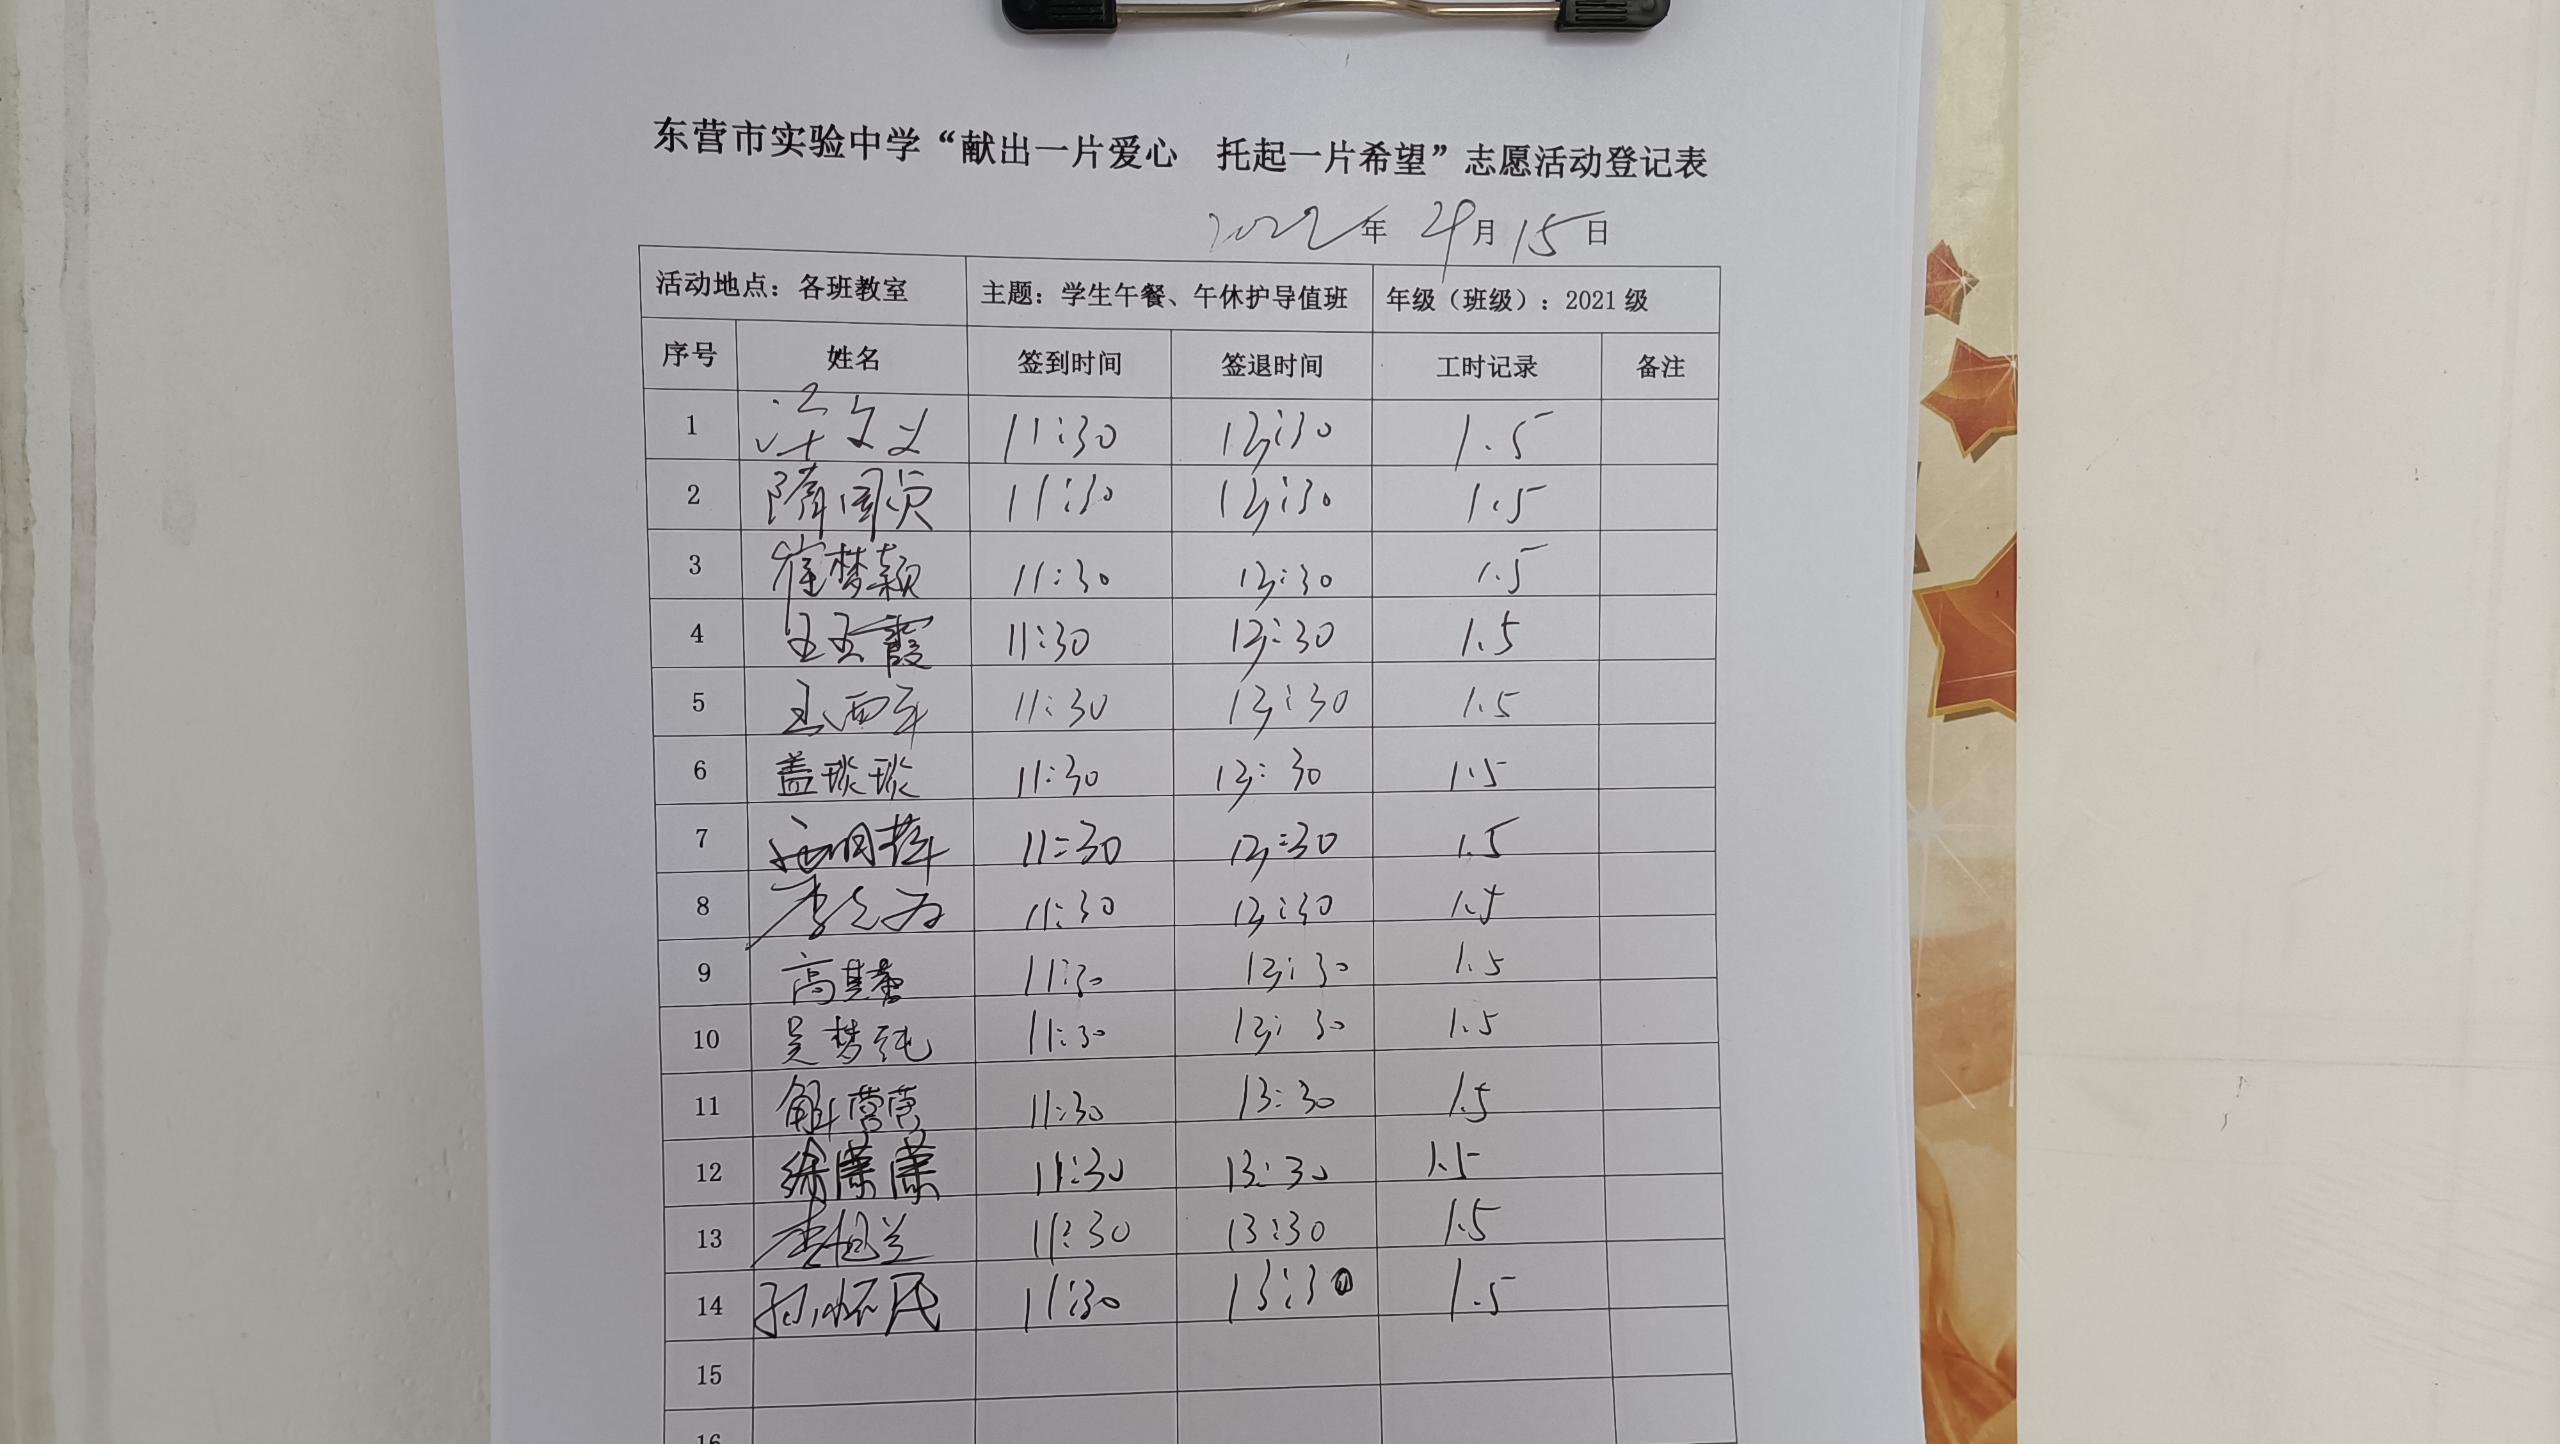 东营市实验中学“献出一片爱心 托起一片希望”志愿活动登记表
2022年 4月15日
活动地点：各班教室 主题：学生午餐、午休护导值班 年级（班级）：2021 级
序号 姓名 签到时间 签退时间 工时记录 备注
1 11:30 13:30 1.5
2 隋国贞 11:30 13:30 1.5
3 崔梦颖 11:30 13:30 1.5
4 王玉霞 11:30 13:30 1.5
5 王西军 11:30 13:30 1.5
6 盖琰琰 11:30 13:30 1.5
7 11:30 13:30 1.5
8 11:30 13:30 1.5
9 11:30 13:30 1.5
10 吴梦纯 11:30 13:30 1.5
11 解营营 11:30 13:30 1.5
12 徐潇潇 11:30 13:30 1.5
13 李旭兰 11:30 13:30 1.5
14 孙怀民 11:30 13:30 1.5
15
16